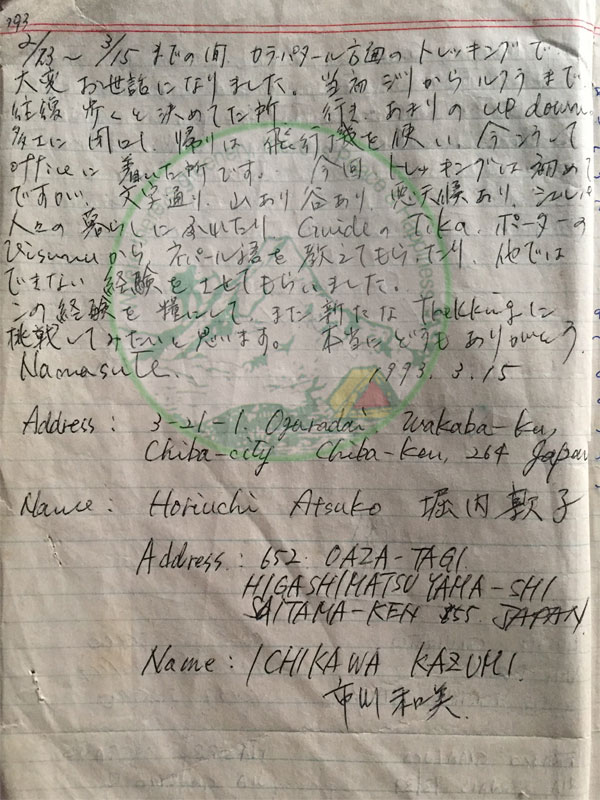 '93
2/23～3/15 までの間 カラパタール方面のトレッキングで
大変お世話になりました。当初ジリからルクラまで
往復歩くと決めてた所、行き、あまりの up down の
多さに閉口し、帰りは飛行機を使い、今こうして
officeに着いた所です。今回トレッキングは初めて
ですが、文字通り、山あり谷あり、悪天候あり、シェルパ
人々の暮らしにふれたり、GuideのTika、ポーターの
Bisunuから、ネパール語を教えてもらったり、他では
できない経験をさせてもらいました。
この経験を糧にして、また新たなTrekkingに
挑戦してみたいと思います。本当にどうもありがとう。
Namasute. 1993.3.15
Address: 3-21-1. Oguradai Wakaba-ku,
Chiba-city Chiba-Ken, 264 Japan
Name: Horiuchi Atsuko 堀内敦子
Address: 652. OAZA-TAGI.
HIGASHIMATSUYAMA-SHI
SAITAMA-KEN 355. JAPAN.
Name: ICHIKAWA KAZUMI.
市川和美.